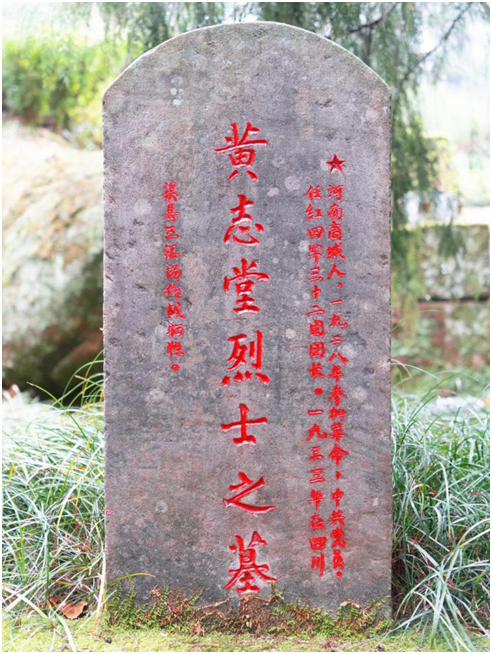 ★河南商城人，一九二八年参加革命，中共党员。
任红四军三十二团团长。一九三三年在四川
黄志堂烈士之墓
渠县三汇场作战牺牲。